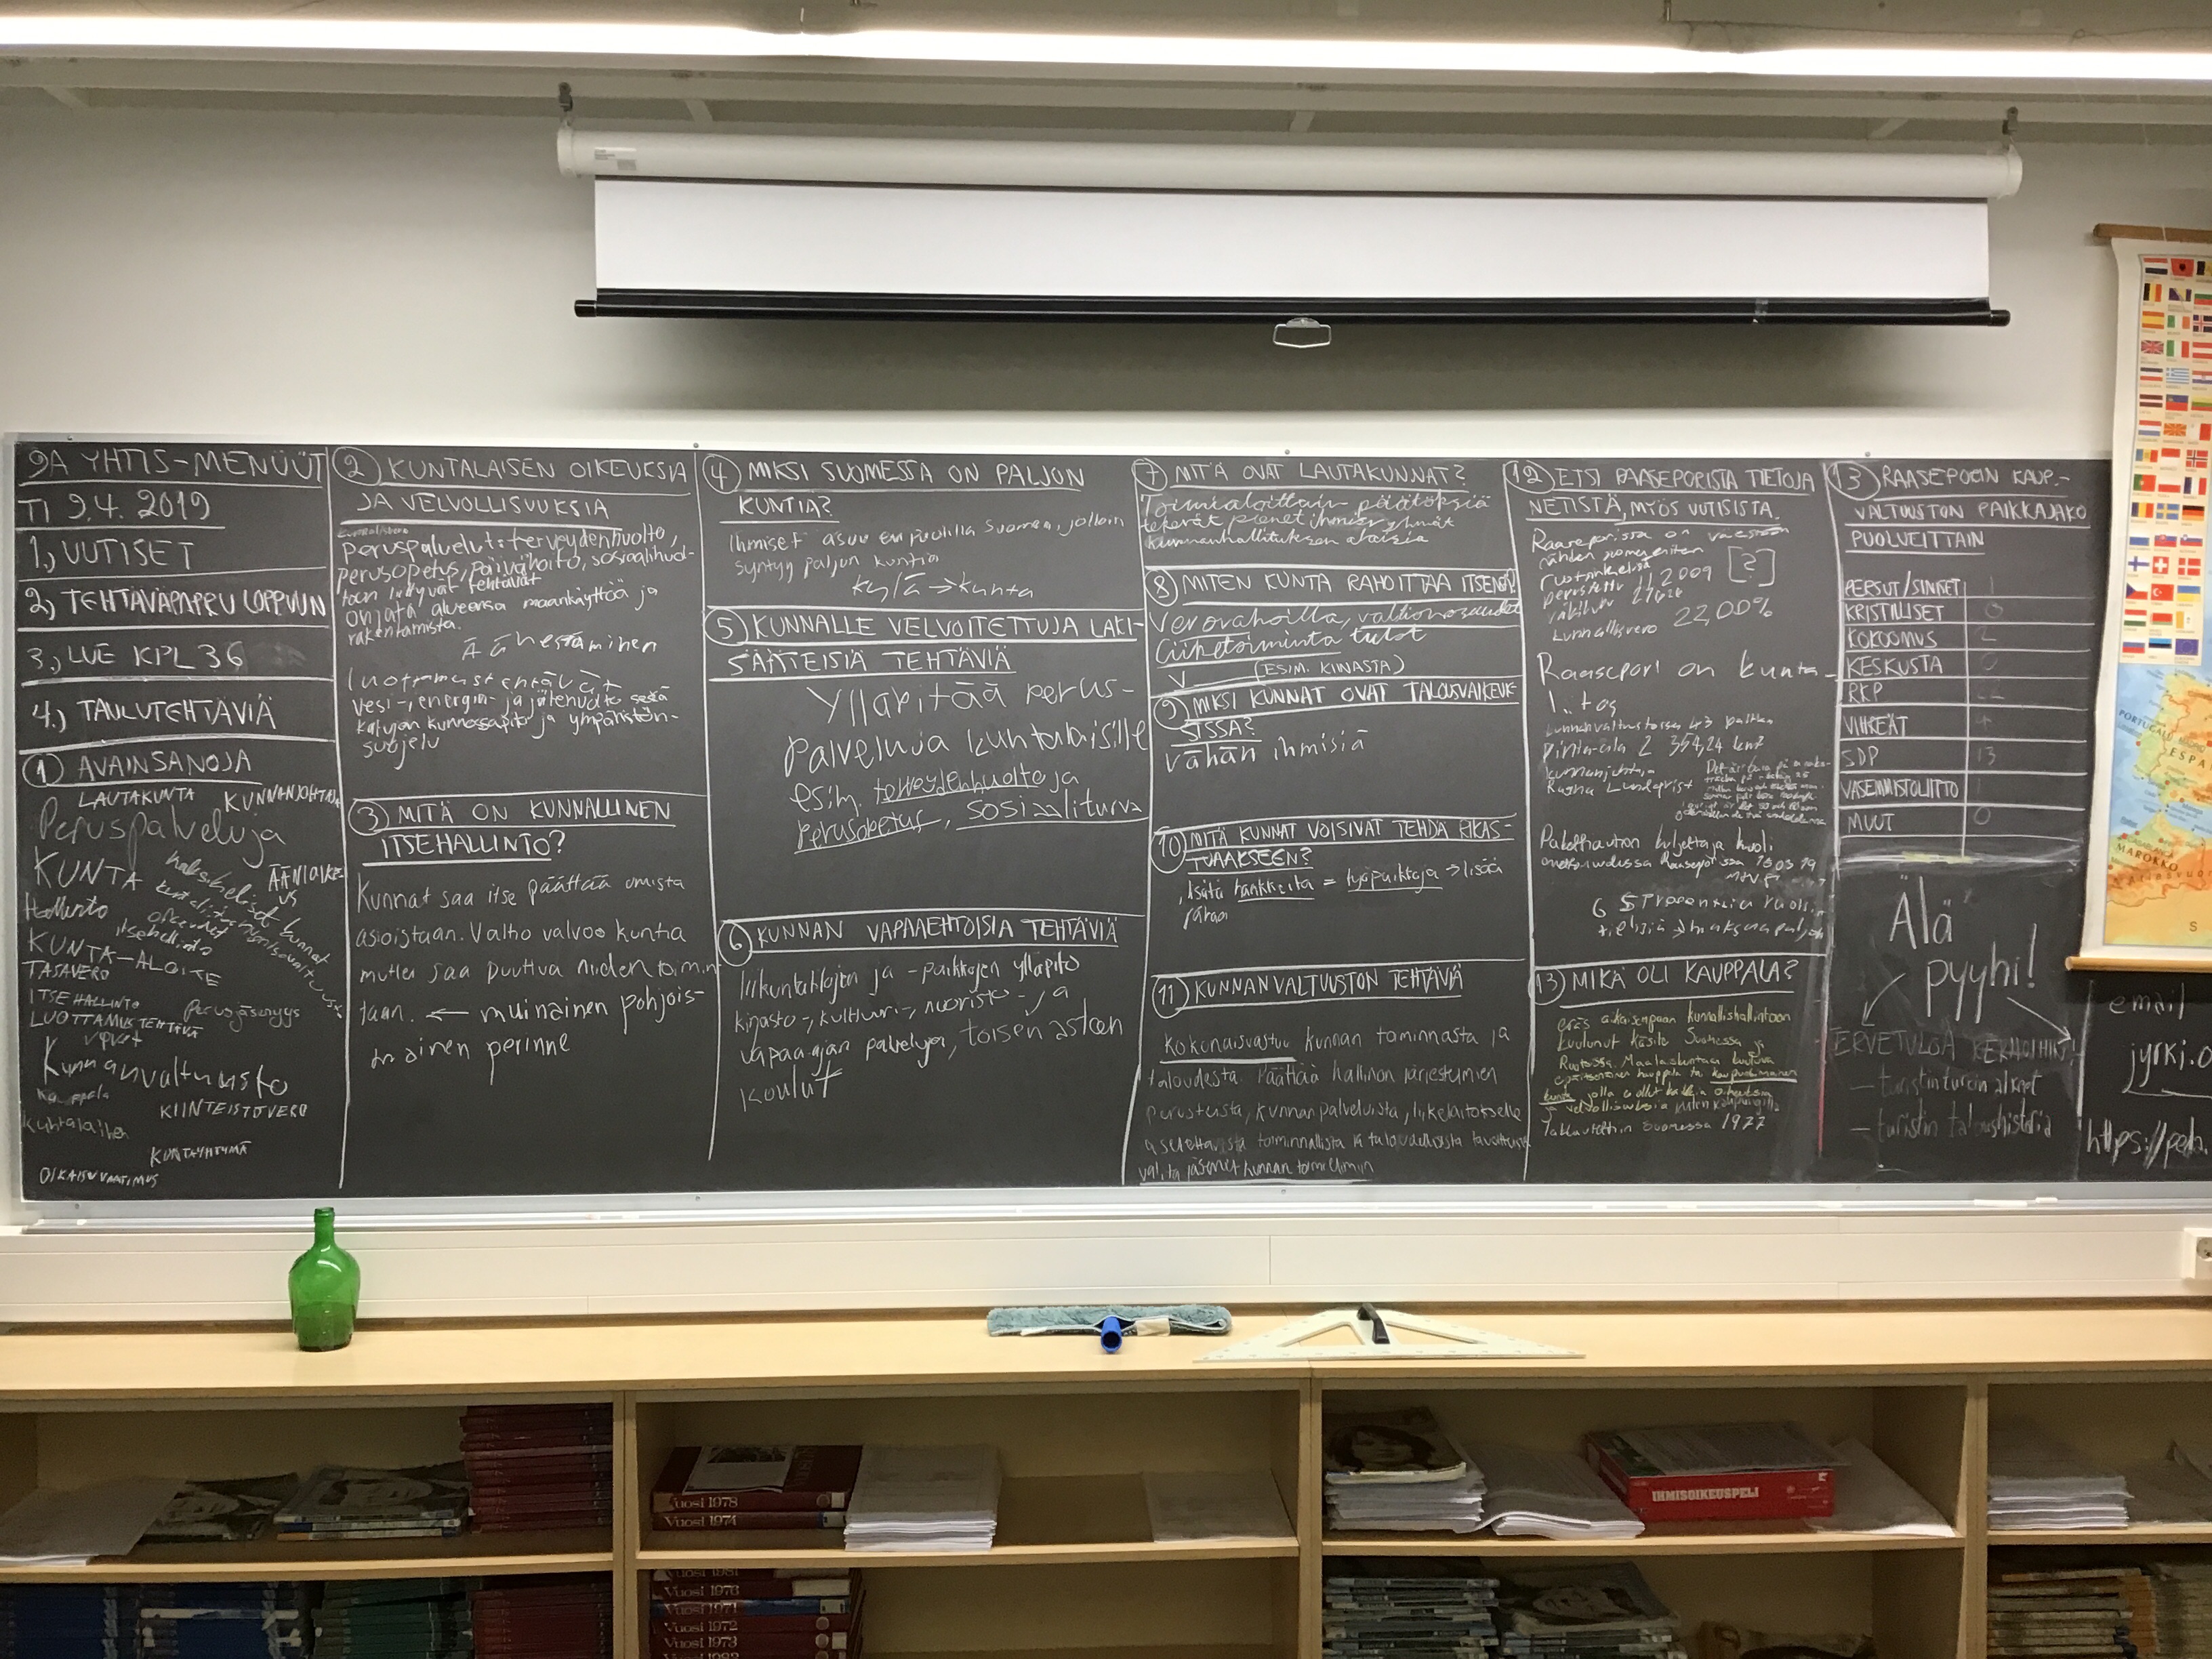 9A YHTIS-MENÜÜT
TI 9.4. 2019
1.) UUTISET
2.) TEHTÄVÄPAPRU LOPPUUN
3.) LUE KPL 36
4.) TAULUTEHTÄVIÄ
1 AVAINSANOJA
LAUTAKUNTA KUNNANJOHTAJA
Peruspalveluja
KUNTA
kaksikieliset kunnat
ÄÄNIOIKEUS
Hallinto
oikeudet
itsehallinto
KUNTA-ALOITE
TASAVERO
ITSEHALLINTO
perusjäsenyys
LUOTTAMUSTEHTÄVÄ
Kunnanvaltuusto
Kauppala
KIINTEISTÖVERO
kuntalainen
KUNTAYHTYMÄ
OIKAISUVAATIMUS
2 KUNTALAISEN OIKEUKSIA
JA VELVOLLISUUKSIA
peruspalvelut: terveydenhuolto,
perusopetus, päivähoito, sosiaalihuol-
toon liittyvät tehtävät
ohjata alueensa maankäyttöä ja
rakentamista.
Äänestäminen
vesi-, energia- ja jätehuolto sekä
katujen kunnossapito ja ympäristön-
suojelu
3 MITÄ ON KUNNALLINEN
ITSEHALLINTO?
Kunnat saa itse päättää omista
asioistaan. Valtio valvoo kuntia
mutta saa puuttua niiden toimin
taan. ← muinainen pohjois-
mainen perinne
4 MIKSI SUOMESSA ON PALJON
KUNTIA?
Ihmiset asuu eri puolilla Suomea, jolloin
syntyy paljon kuntia
→ kunta
5 KUNNALLE VELVOITETTUJA LAKI-
SÄÄTEISIÄ TEHTÄVIÄ
Ylläpitää perus-
palveluja kuntalaisille
esim. terveydenhuolto ja
perusopetus, sosiaaliturva
6 KUNNAN VAPAAEHTOISIA TEHTÄVIÄ
liikuntatilojen ja -paikkojen ylläpito
kirjasto-, kulttuuri-, nuoriso- ja
vapaa-ajan palveluja, toisen asteen
koulut
7 MITÄ OVAT LAUTAKUNNAT?
Toimialoittain päätöksiä
tekevät pienet ihmisryhmät
kunnanhallituksen alaisia
8 MITEN KUNTA RAHOITTAA ITSENSÄ?
Verovaroilla, valtionosuudet
Liiketoiminta tulot
(ESIM. KIINASTA)
9 MIKSI KUNNAT OVAT TALOUSVAIKEUK-
SISSA?
vähän ihmisiä
10 MITÄ KUNNAT VOISIVAT TEHDÄ RIKAS-
TUAKSEEN?
lisätä hankkeita = työpaikkoja → lisää
rahaa
11 KUNNANVALTUUSTON TEHTÄVIÄ
kokonaisvastuu kunnan toiminnasta ja
taloudesta. Päättää hallinnon järjestämisen
perusteista, kunnan palveluista, liikelaitokselle
asetettavista toiminnallista ja taloudellisista tavoitteista
valita jäsenet kunnan toimielimiin
12 ETSI RAASEPORISTA TIETOJA
NETISTÄ, MYÖS UUTISISTA.
Raaseporissa on väestöön
nähden suomen eniten
ruotsinkielisiä [?]
perustettu 1.1.2009
Kunnallisvero 22,00%
Raasepori on kunta-
liitos
kunnanvaltuustossa 43 paikkaa
Pinta-ala 2 354,24 km²
kunnanjohtaja
Ragna Lundqvist
Pakettiauton kuljettaja kuoli
onnettomuudessa Raaseporissa
65 prosenttia
13 MIKÄ OLI KAUPPALA?
eräs aikaisempaan kunnallishallintoon
kuulunut käsite Suomessa ja
Ruotsissa.
kunta jolla ei ollut kaikkia oikeuksia
ja velvollisuuksia kuten kaupungilla
Lakkautettiin Suomessa 1977
13 RAASEPORIN KAUP.-
VALTUUSTON PAIKKAJAKO
PUOLUEITTAIN
PERSUT/SINISET 1
KRISTILLISET 0
KOKOOMUS 2
KESKUSTA 0
RKP 22
VIHREÄT 4
SDP 13
VASEMMISTOLIITTO 1
MUUT 0
Älä
pyyhi!
TERVETULOA KERHOIHIN!
- turistinturcin alkeet
- turistin taloushistoria
email
jyrki.o
https://peda.
PORTUGAL
ESPA
MAROKKO
S
Vuosi 1978
Vuosi 1974
Vuosi 1981
Vuosi 1976
Vuosi 1971
Vuosi 1972
Vuosi 1973
IHMISOIKEUSPELI